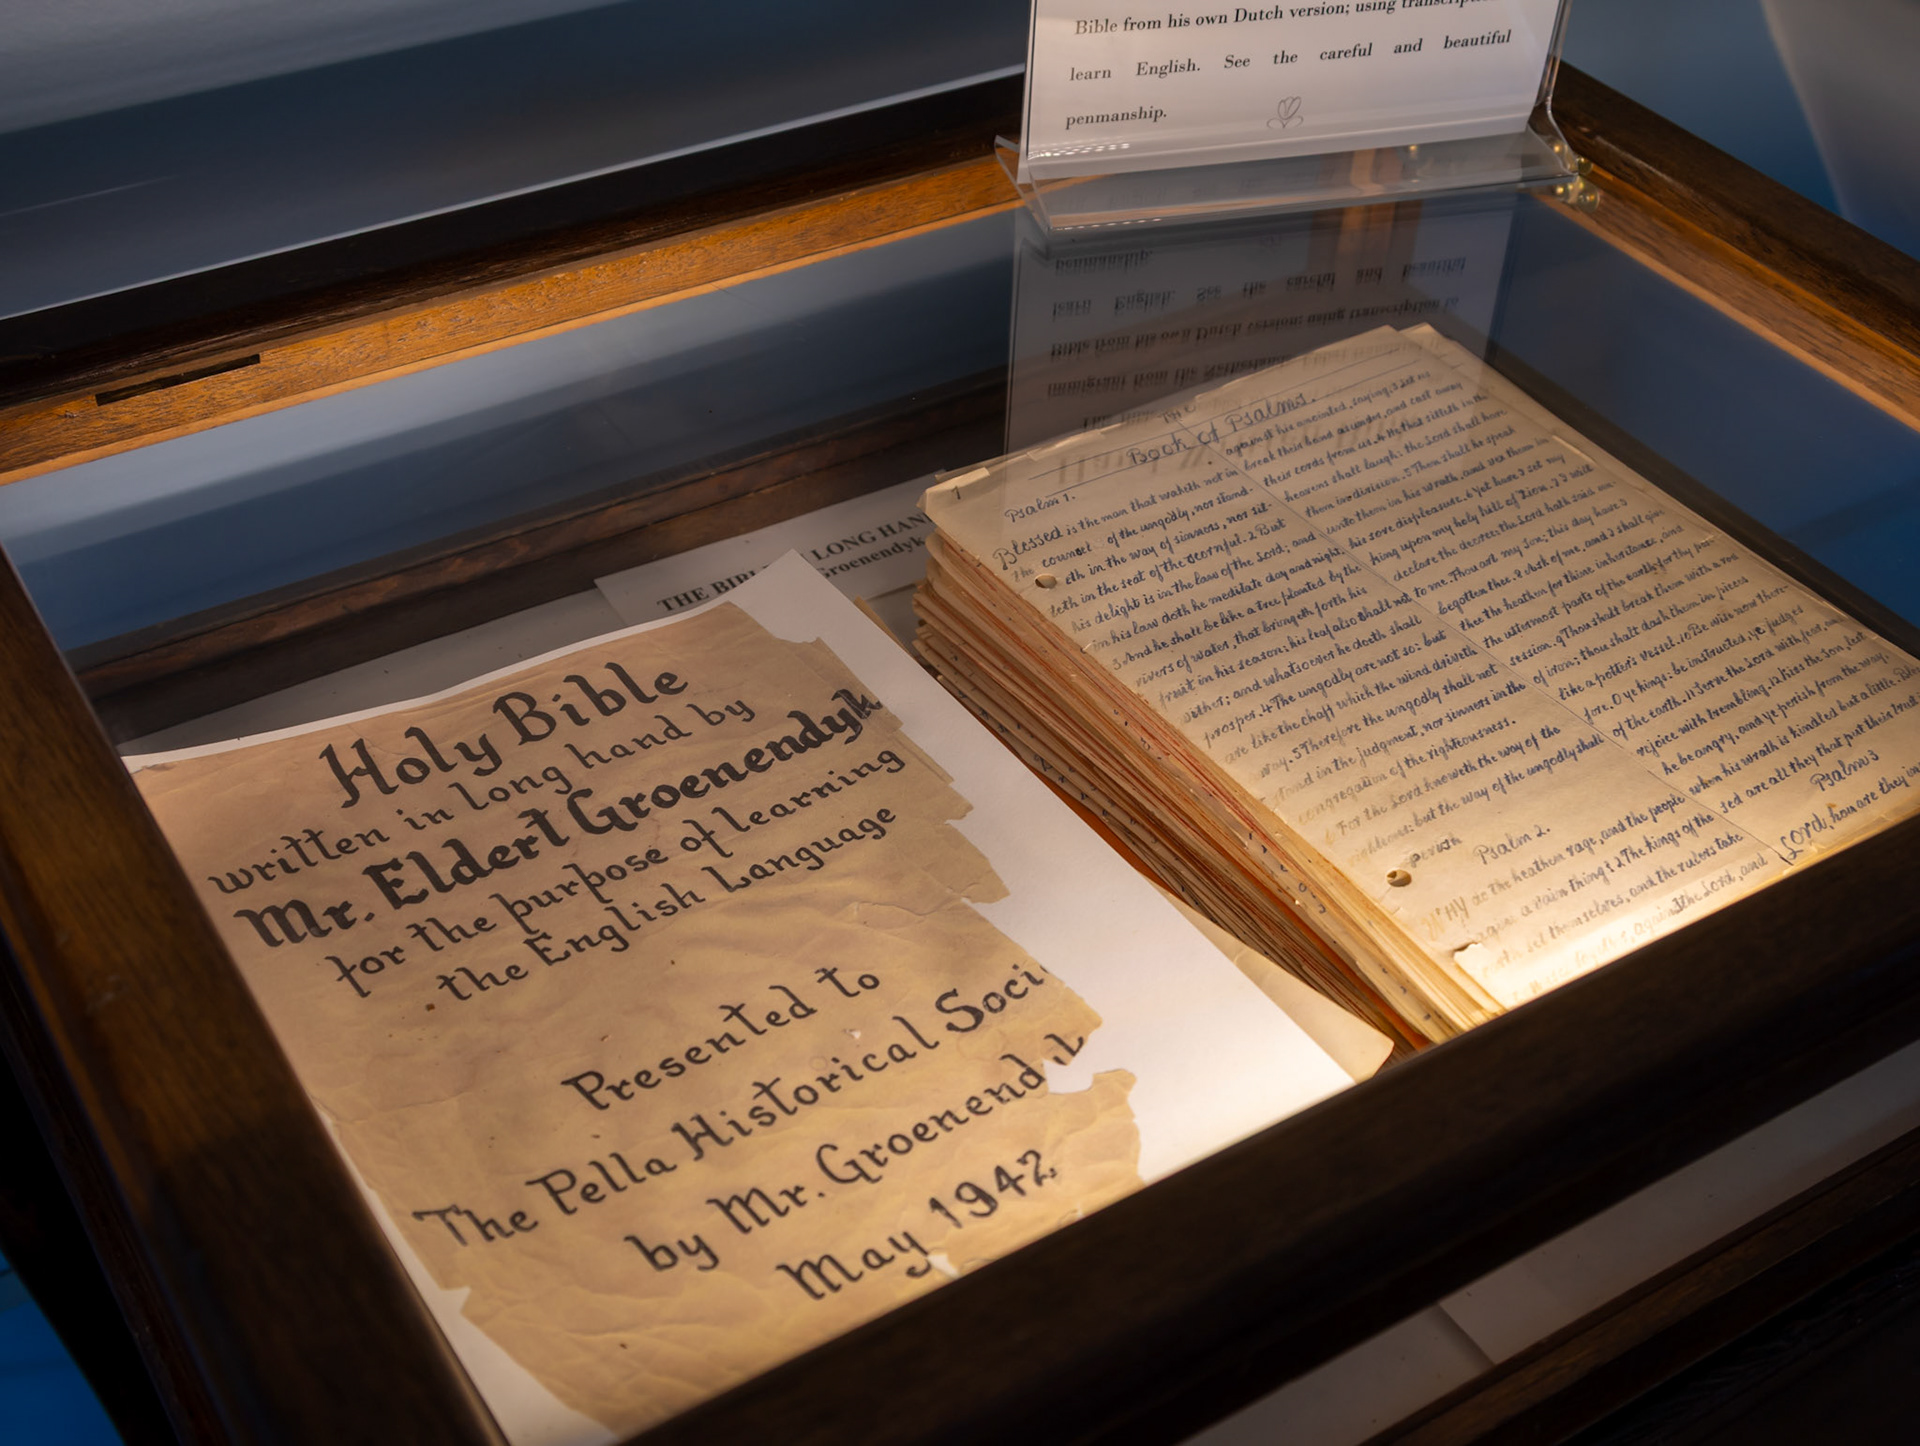 Bible from his own Dutch version; using
learn English. See the careful and beautiful
penmanship.
THE LONG HAN
Groenendyk
Holy Bible
written in long hand by
Mr. Eldert Groenendyk
for the purpose of learning
the English Language
Presented to
The Pella Historical Soci
by Mr. Groenend
May 1942
1
Book of Psalms.
Psalm 1.
Blessed is the man that walketh not in
the counsel of the ungodly, nor stand-
eth in the way of sinners, nor sit-
teth in the seat of the scornful. 2 But
his delight is in the law of the Lord; and
in his law doth he meditate day and night.
3 And he shall be like a tree planted by the
rivers of water, that bringeth forth his
fruit in his season; his leaf also shall not
wither; and whatsoever he doeth shall
prosper. 4 The ungodly are not so: but
are like the chaff which the wind driveth
way. 5 Therefore the ungodly shall not
stand in the judgment, nor sinners in the
congregation of the righteousness.
6 For the Lord knoweth the way of the
righteous: but the way of the ungodly shall
perish
Psalm 2.
WHY do the heathen rage, and the people
imagine a vain thing? 2 The kings of the
earth set themselves, and the rulers take
against the Lord, and
against his anointed, saying, 3 Let us
break their bands asunder, and cast away
their cords from us. 4 He that sitteth in the
heavens shall laugh: the Lord shall have
them in division. 5 Then shall he speak
unto them in his wrath, and vex them in
his sore displeasure. 6 Yet have I set my
king upon my holy hill of Zion. 7 I will
declare the decree: the Lord hath said un-
to me, Thou art my son; this day have I
begotten thee. 8 Ask of me, and I shall give
thee the heathen for thine inheritance, and
the uttermost parts of the earth for thy pos-
session. 9 Thou shalt break them with a rod
of iron; thou shalt dash them in pieces
like a potter's vessel. 10 Be wise now there-
fore, O ye kings: be instructed, ye judges
of the earth. 11 Serve the Lord with fear, and
rejoice with trembling. 12 Kiss the Son, lest
he be angry, and ye perish from the way,
when his wrath is kindled but a little. Bles-
sed are all they that put their trust
Psalm 3
LORD, how are they in